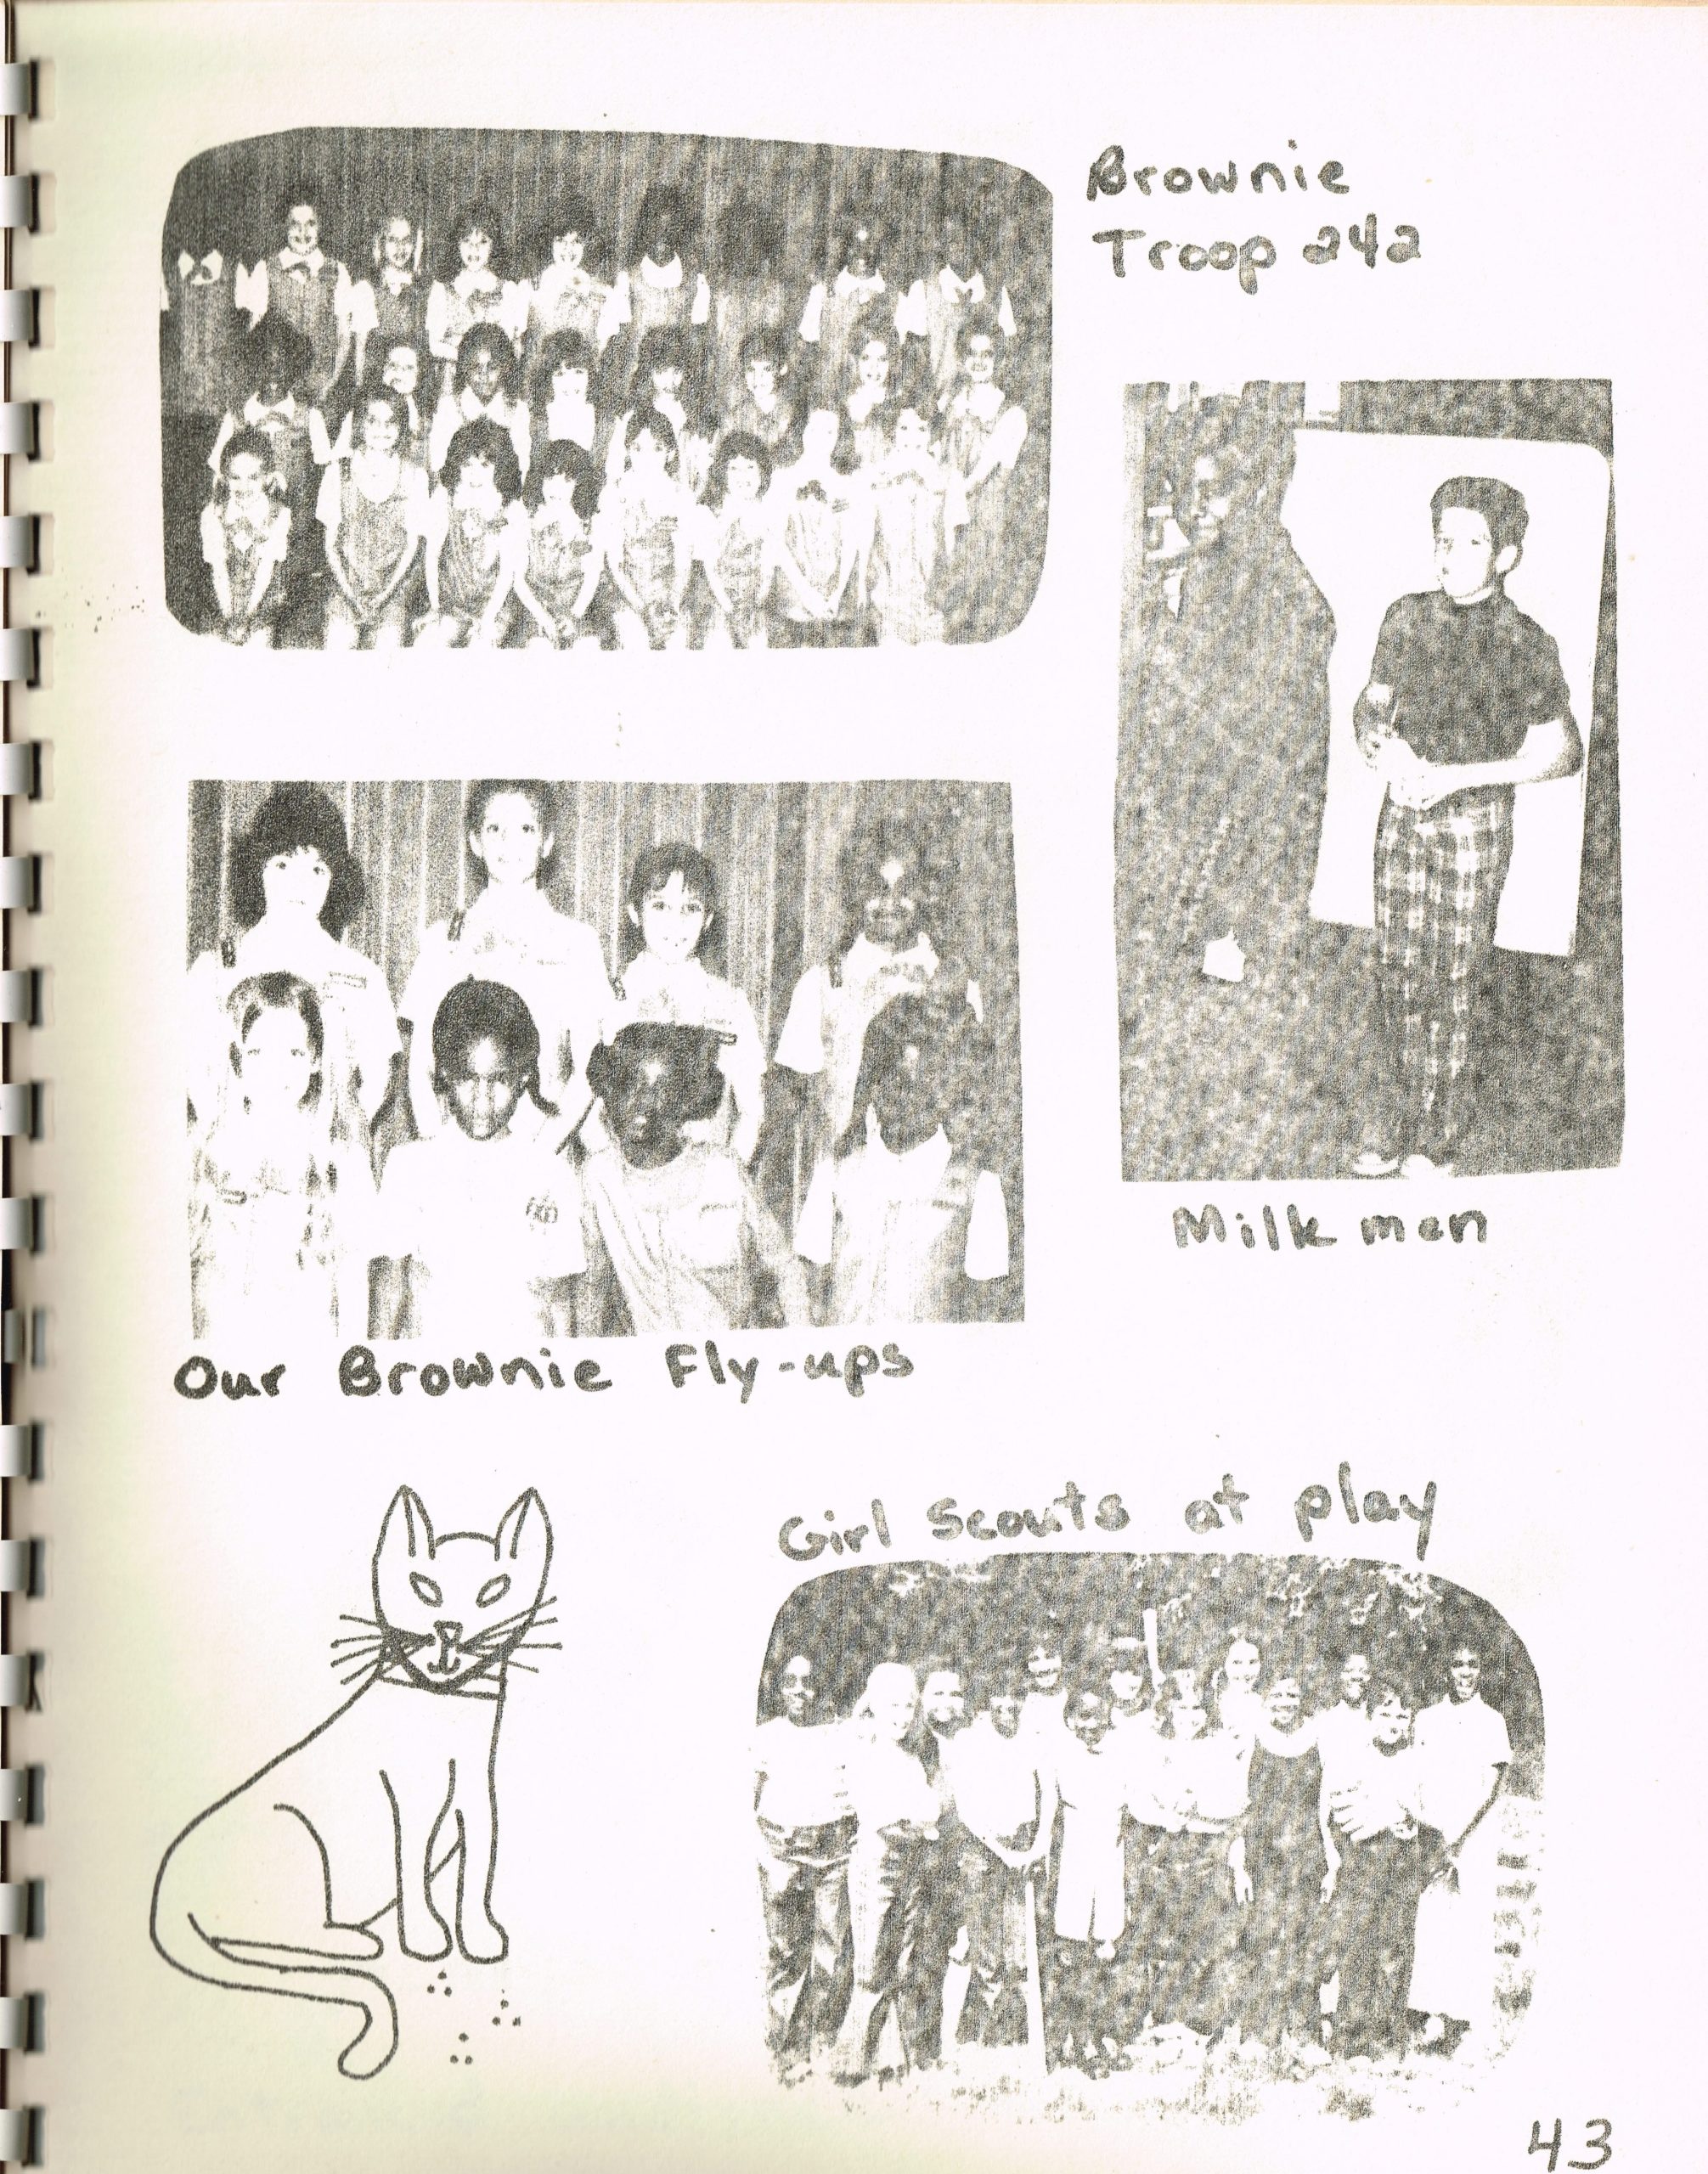 Brownie
Troop 242
Milk men
Our Brownie Fly-ups
Girl Scouts at play
43